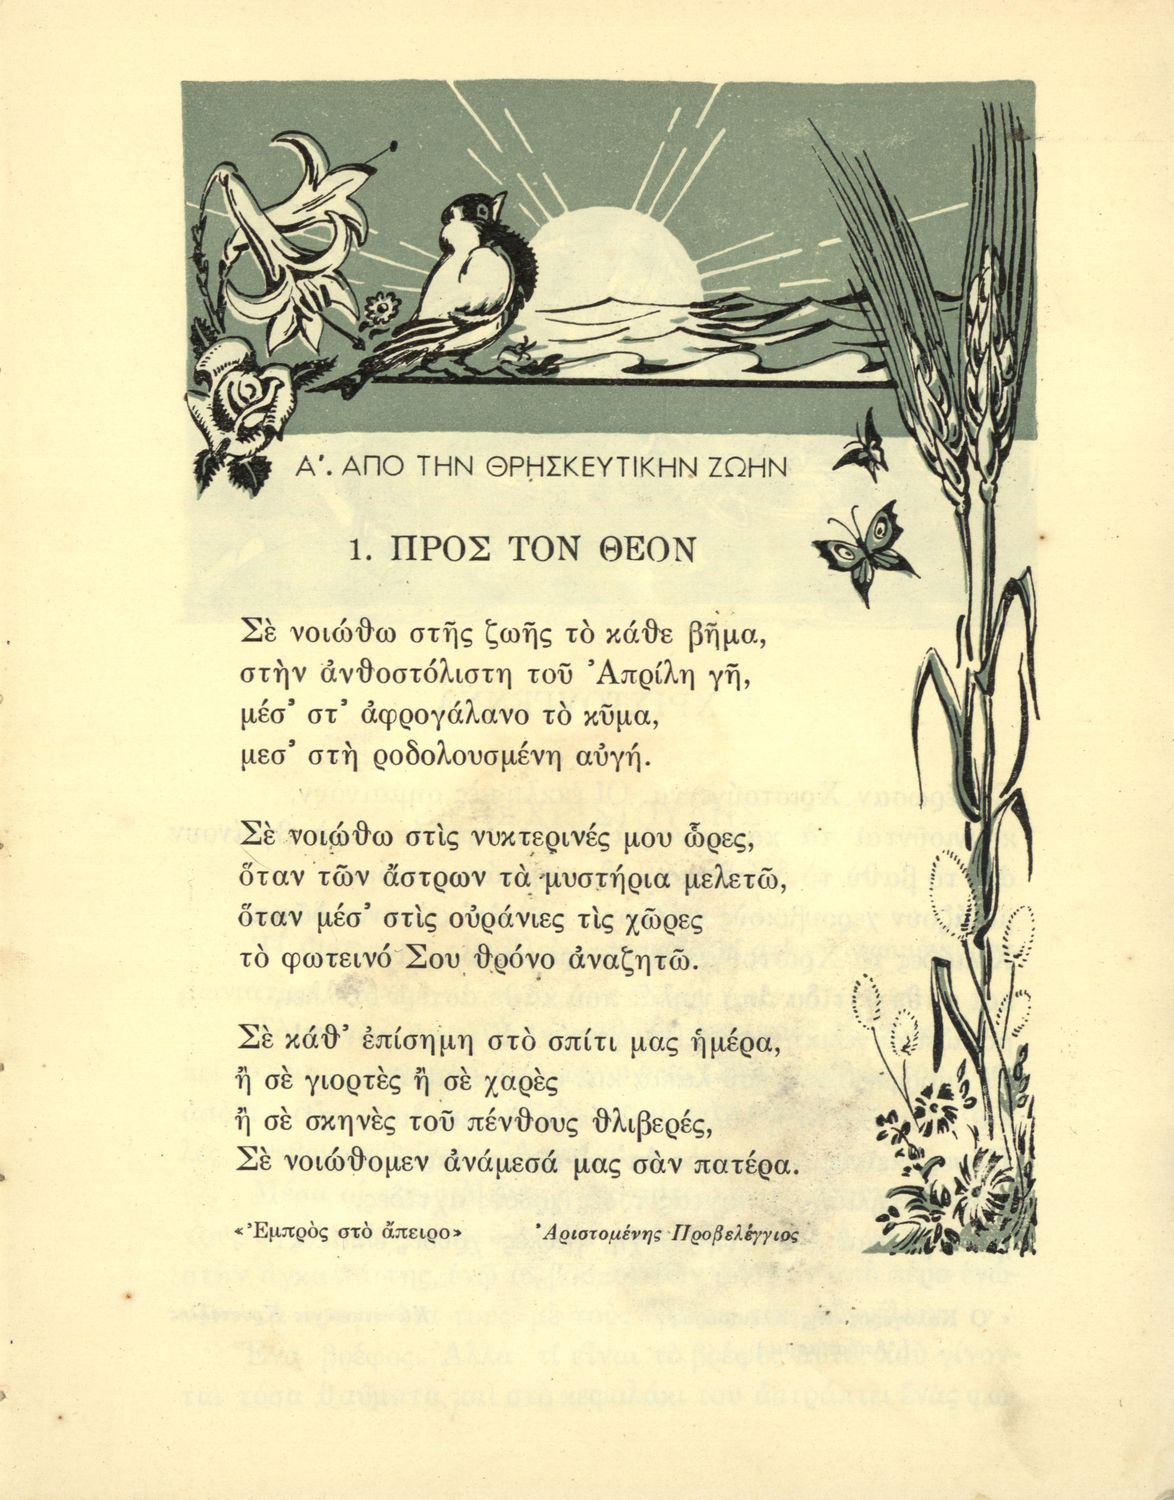 Α'. ΑΠΟ ΤΗΝ ΘΡΗΣΚΕΥΤΙΚΗΝ ΖΩΗΝ
1. ΠΡΟΣ ΤΟΝ ΘΕΟΝ
Σὲ νοιώθω στῆς ζωῆς τὸ κάθε βῆμα,
στὴν ἀνθοστόλιστη τοῦ Ἀπρίλη γῆ,
μέσ' στ' ἀφρογάλανο τὸ κῦμα,
μεσ' στὴ ροδολουσμένη αὐγή.
Σὲ νοιώθω στὶς νυκτερινές μου ὧρες,
ὅταν τῶν ἄστρων τὰ μυστήρια μελετῶ,
ὅταν μέσ' στὶς οὐράνιες τὶς χῶρες
τὸ φωτεινό Σου θρόνο ἀναζητῶ.
Σὲ κάθ' ἐπίσημη στὸ σπίτι μας ἡμέρα,
ἢ σὲ γιορτὲς ἢ σὲ χαρὲς
ἢ σὲ σκηνὲς τοῦ πένθους θλιβερές,
Σὲ νοιώθομεν ἀνάμεσά μας σὰν πατέρα.
«Ἐμπρὸς στὸ ἄπειρο» Ἀριστομένης Προβελέγγιος